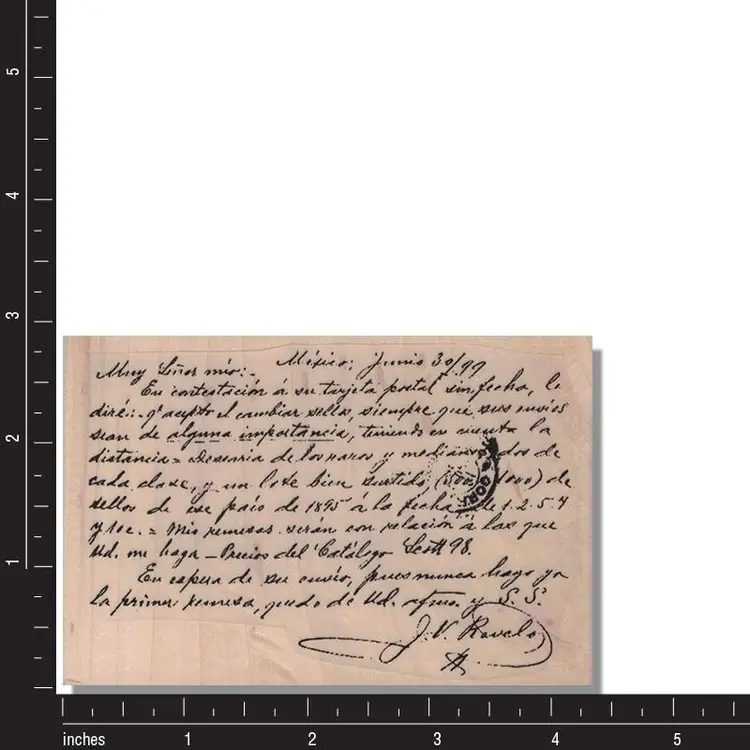 México: Junio 30/99
Muy Señor mío:-
En contestación á su tarjeta postal sin fecha, le
diré:- qe acepto el cambiar sellos, siempre que sus envíos
sean de alguna importancia, teniendo en cuenta la
distancia = Desearia de los raros y medianos dos de
cada clase, y un lote bien surtido, (500 1000) de
sellos de ese país de 1895 á la fecha de 1. 2. 5. 4
y 10c. = Mis remesas serán con relación á las que
Ud. me haga - Precios del Catálogo Scott 98.
En espera de su envío, pues nunca hago yo
la primer remesa, quedo de Ud. afmo. y S. S.
J. V. Ravelo
GORR
5
4
3
2
1
inches 1 2 3 4 5